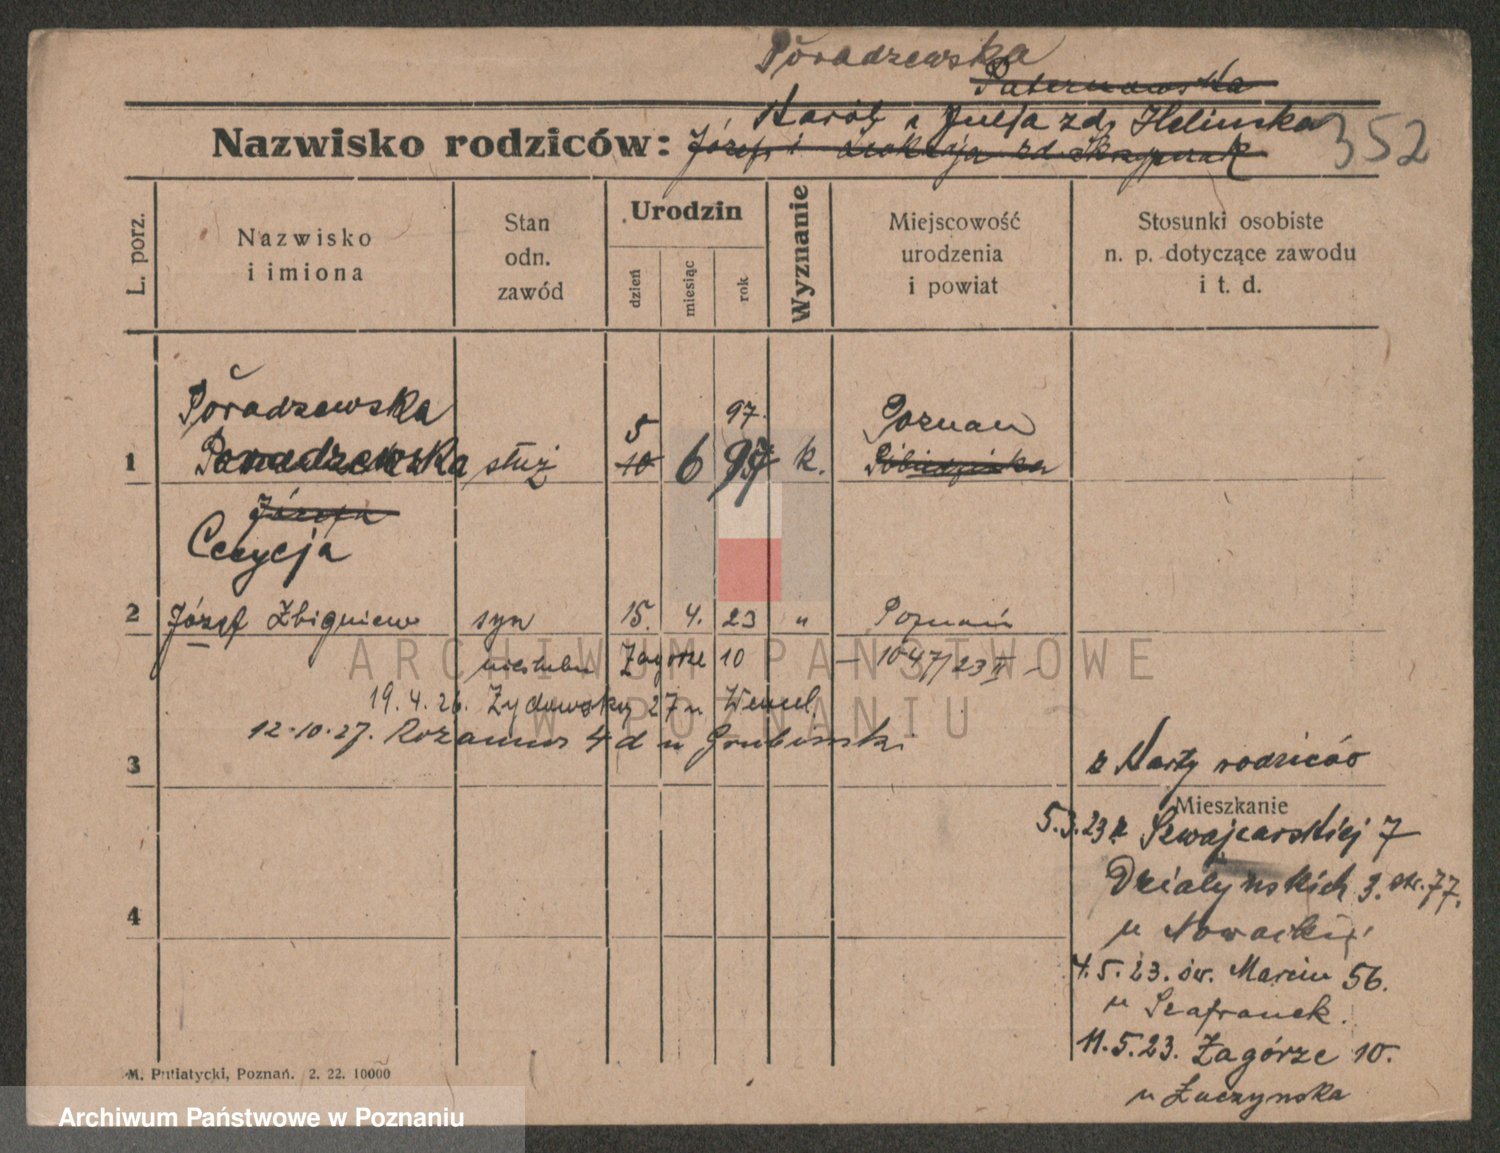 Poradzewska
Paternowska
Karól i Julja zd. Helinska
Nazwisko rodziców: Józef i zd. Skrzypczak
352
L. porz.
Nazwisko
i imiona
Stan
odn.
zawód
Urodzin
dzień
miesiąc
rok
Wyznanie
Miejscowość
urodzenia
i powiat
Stosunki osobiste
n. p. dotyczące zawodu
i t. d.
Poradzewska
5
97.
Poznan
1 służ 10 6 97 k.
Józefa
Cecycja
2 Józef Zbigniew syn 15. 4. 23 " Poznań
nieślubn Zagórze 10 - 1047/23 II -
19.4.26. Żydowska 27 u Wencel
12.10.27. 4 d u
3
z Karty rodziców
Mieszkanie
5.3.23 z Szwajcarskiej 7
Działyńskich 3. 77.
4
u Nowackiej
4.5.23. św. Marcin 56.
u Szafranek.
11.5.23. Zagórze 10.
u Łuczynska
M. Putiatycki, Poznań. 2. 22. 10000
ARCHIWUM PAŃSTWOWE
W POZNANIU
Archiwum Państwowe w Poznaniu